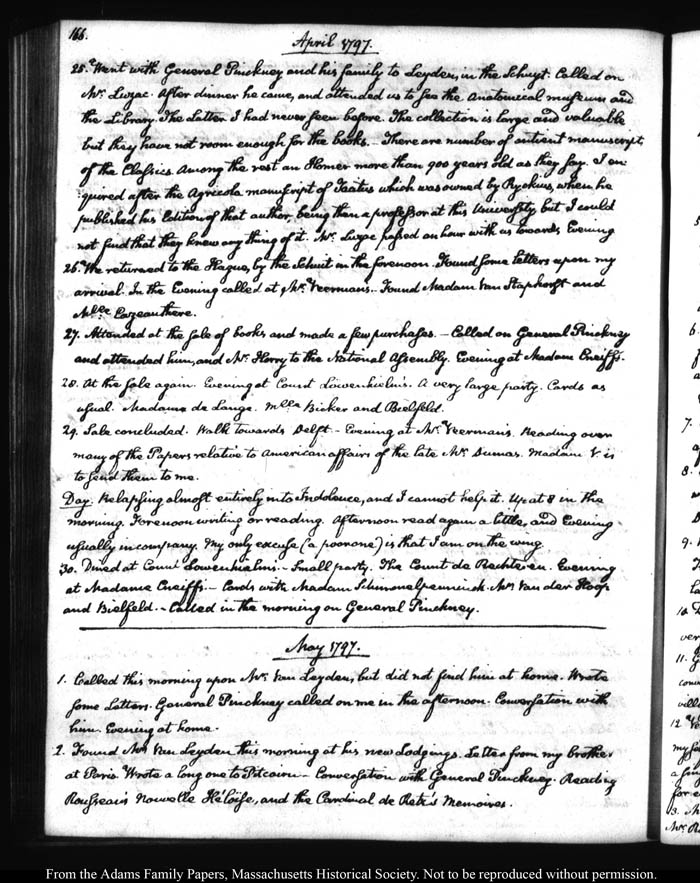 166.
April 1797.
25. Went with General Pinckney and his family to Leyden, in the Schuyt. Called on
Mr. Luzac. After dinner he came, and attended us to see the Anatomical museum and
the Library. The Latter I had never seen before. The collection is large and valuable
but they have not room enough for the books. – There are number of antient manuscripts
of the Classics. Among the rest an Homer more than 900 years old as they say. I en-
quired after the Agricola manuscript of Tacitus which was owned by Ryckius, when he
published his Edition of that author, being then a professor at this University, but I could
not find that they knew any thing of it. Mr. Luzac passed an hour with us towards Evening
26. We returned to the Hague, by the Schuit in the forenoon. Found some letters upon my
arrival. In the Evening called at Mr. Veerman's. Found Madam Van Staphorst and
Mlle. Cazeau there.
27. Attended at the sale of books, and made a few purchases. – Called on General Pinckney
and attended him, and Mr. Horry to the National Assembly. Evening at Madam Eneiffs.
28. At the sale again. Evening at Count Löwenhielm's. A very large party. Cards as
usual. Madams de Lange. Mlle Bicker and Bielfeld.
29. Sale concluded. Walk towards Delft – Evening at Mr. Veerman's. Reading over
many of the Papers relative to American affairs of the late Mr. Dumas. Madam V is
to send them to me.
Day. Relapsing almost entirely into Indolence, and I cannot help it. Up at 8 in the
morning. Forenoon writing or reading. Afternoon read again a little, and Evening
usually in company. My only excuse (a poor one) is that I am on the wing.
30. Dined at Count Lowenhielms. – Small party. The Count de Rechteren. Evening
at Madame Eneiffs – Cards with Madam Schimmelpenninck. Mr. Van der Hoop
and Bielfeld. – Called in the morning on General Pinckney.
May 1797.
1. Called this morning upon Mr. Van Leyden, but did not find him at home. Wrote
some Letters. General Pinckney called on me in the afternoon. Conversation with
him. Evening at home.
2. Found Mr. Van Leyden this morning at his new Lodgings. Letter from my brother
at Paris. Wrote a long one to Pitcairn – Conversation with General Pinckney. Reading
Rousseau's Nouvelle Héloïse, and the Cardinal de Retz's Memoires.
From the Adams Family Papers, Massachusetts Historical Society. Not to be reproduced without permission.